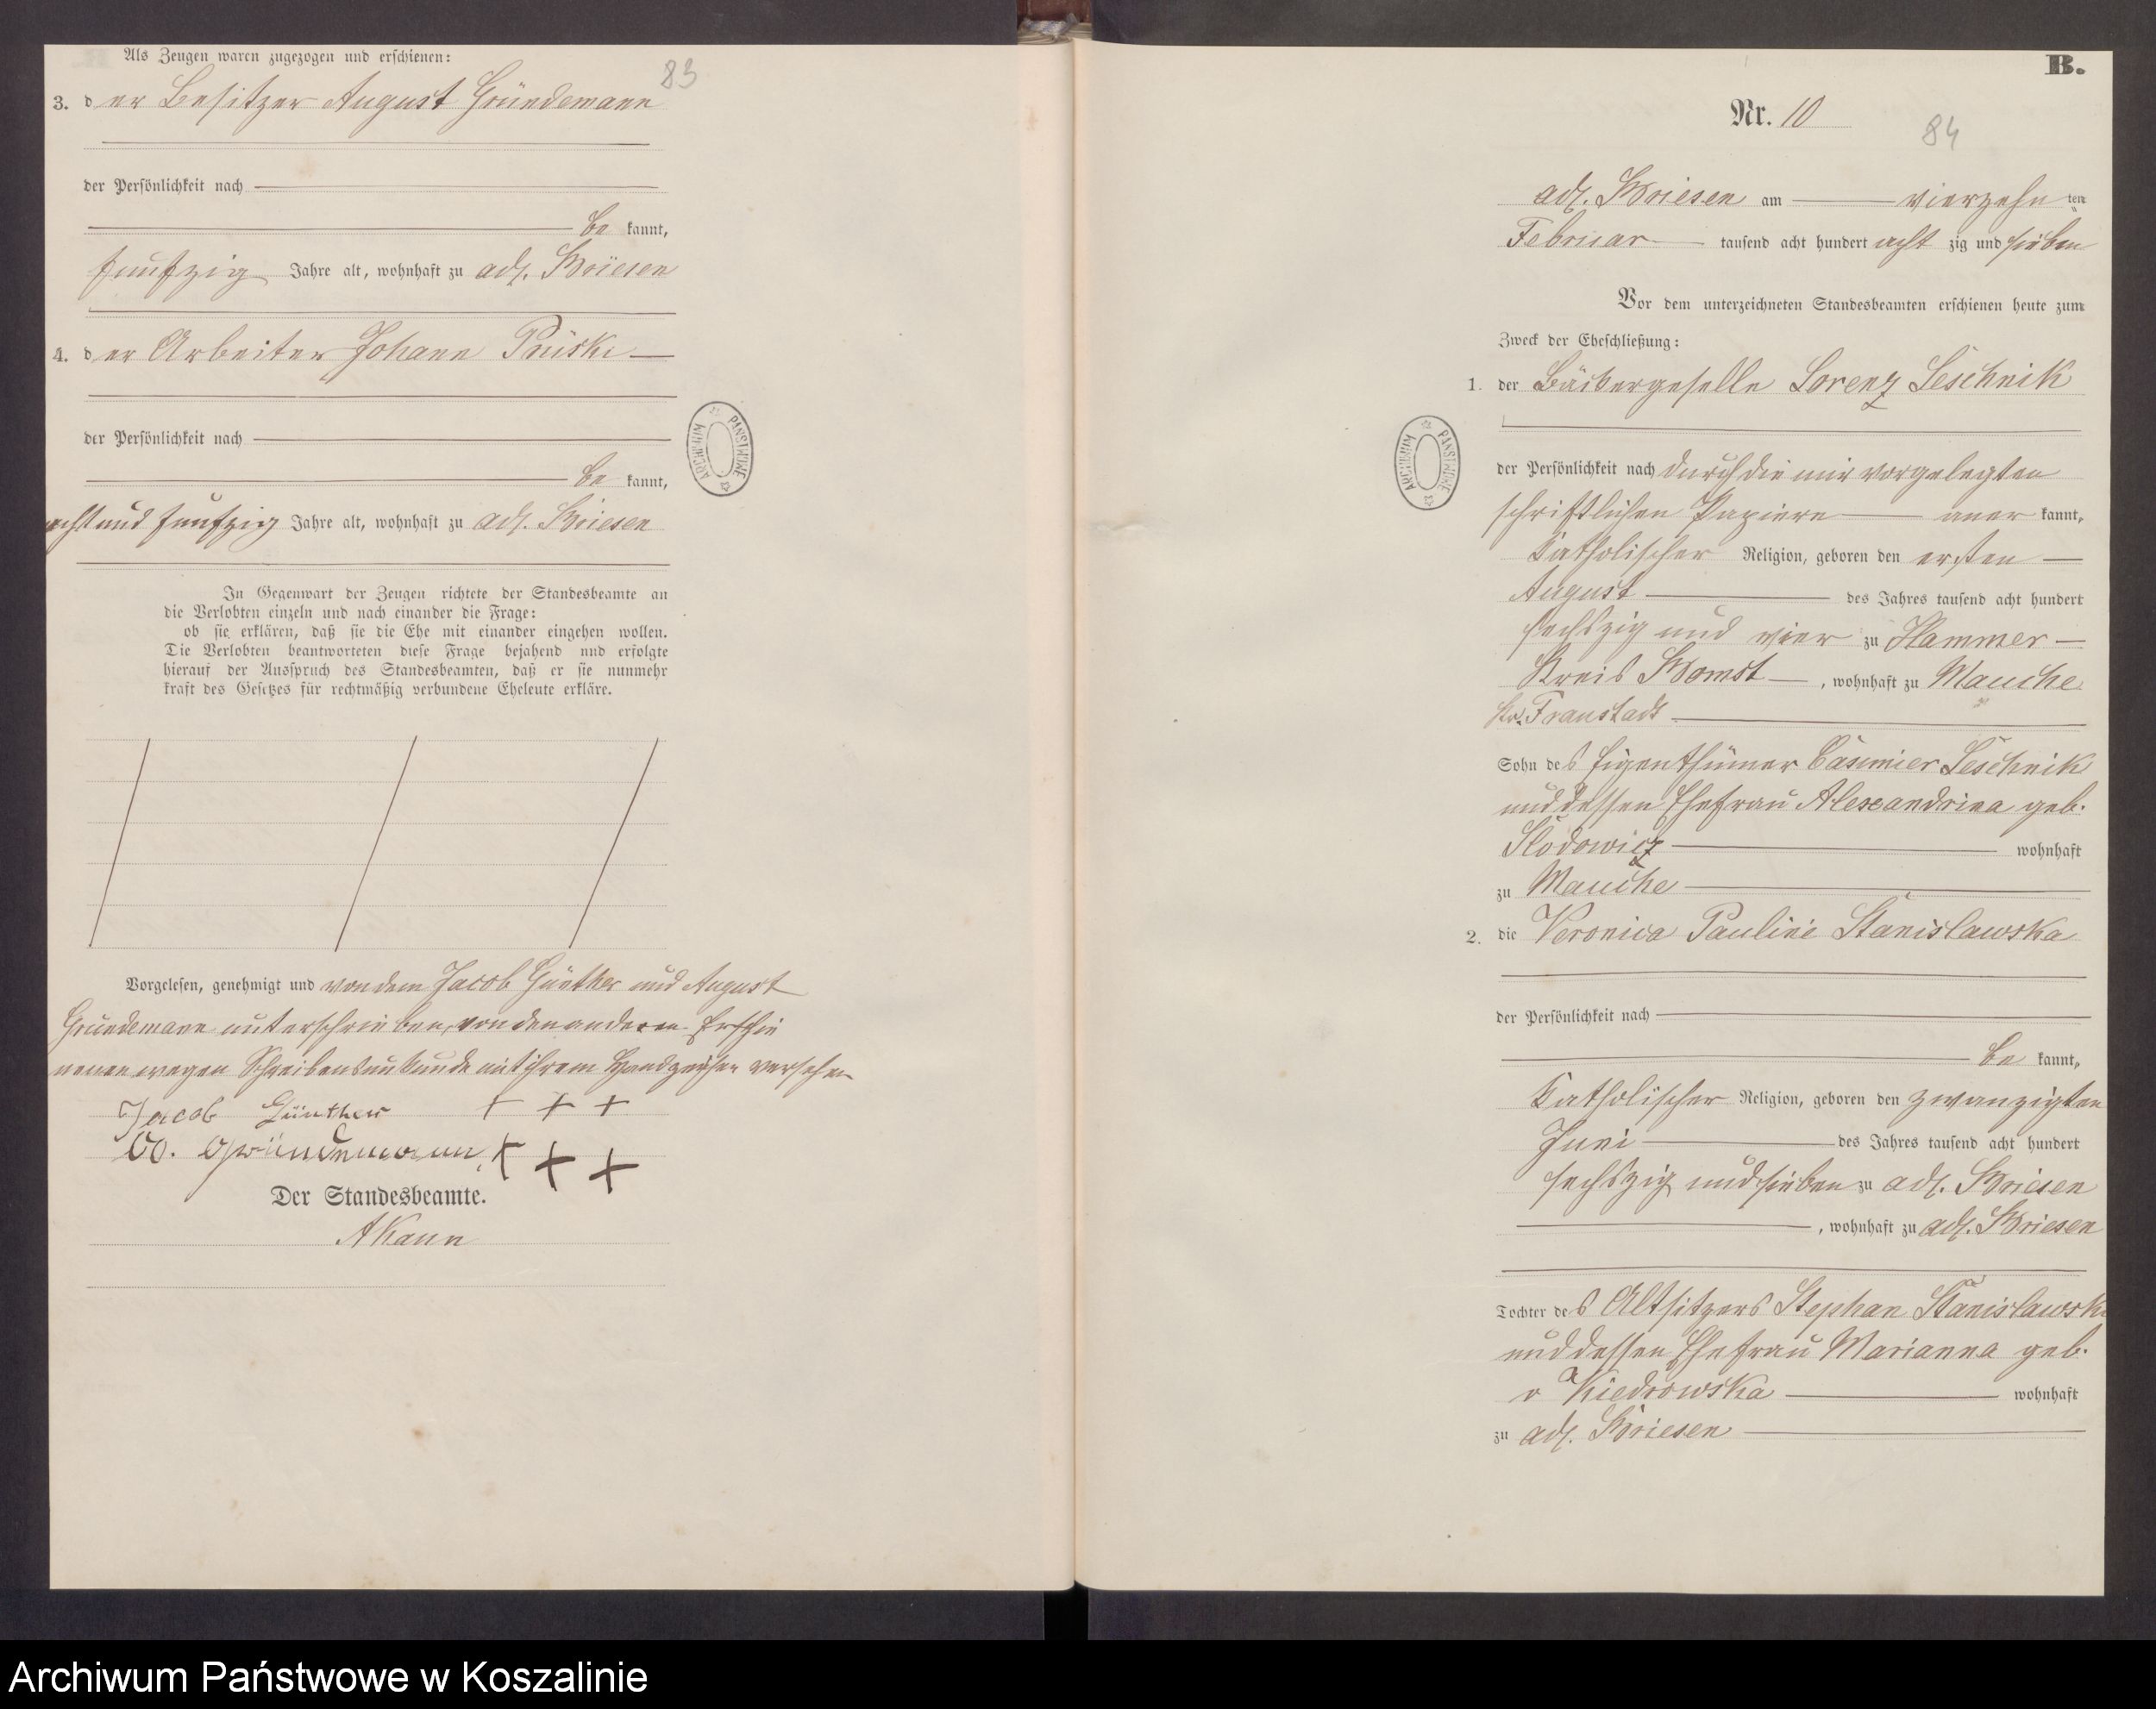 Als Zeugen waren zugezogen und erschienen:
83
3. der Besitzer August Gründemann
der Persönlichkeit nach
be kannt,
funfzig Jahre alt, wohnhaft zu adl. Briesen
4. der Arbeiter Johann Pruski
der Persönlichkeit nach
be kannt,
acht und funfzig Jahre alt, wohnhaft zu adl. Briesen
In Gegenwart der Zeugen richtete der Standesbeamte an
die Verlobten einzeln und nach einander die Frage:
ob sie erklären, daß sie die Ehe mit einander eingehen wollen.
Die Verlobten beantworteten diese Frage bejahend und erfolgte
hierauf der Ausspruch des Standesbeamten, daß er sie nunmehr
kraft des Gesetzes für rechtmäßig verbundene Eheleute erkläre.
Vorgelesen, genehmigt und von dem Jacob Günther und August
Gründemann unterschrieben, von den anderen Erschie
nenen wegen Schreibensunkunde mit ihrem Handzeichen versehen
Jacob Günther + + +
A. Gründemann + + +
Der Standesbeamte.
A Kann
ARCHIWUM PAŃSTWOWE
B.
Nr. 10
84
adl. Briesen am vierzehn ten
Februar tausend acht hundert acht zig und sieben
Vor dem unterzeichneten Standesbeamten erschienen heute zum
Zweck der Eheschließung:
1. der Bäckergeselle Lorenz Leschnik
ARCHIWUM PAŃSTWOWE
der Persönlichkeit nach durch die mir vorgelegten
schriftlichen Papiere aner kannt,
katholischer Religion, geboren den ersten
August des Jahres tausend acht hundert
sechszig und vier zu Hammer
Kreis Bomst, wohnhaft zu Mauche
Kr. Fraustadt
Sohn des Eigenthümer Casimier Leschnik
und dessen Ehefrau Alexandrina geb.
Slodowicz wohnhaft
zu Mauche
2. die Veronica Pauline Stanislawska
der Persönlichkeit nach
be kannt,
katholischer Religion, geboren den zwanzigten
Juni des Jahres tausend acht hundert
sechszig und sieben zu adl. Briesen
, wohnhaft zu adl. Briesen
Tochter des Altsitzers Stephan Stanislawski
und dessen Ehefrau Marianna geb.
v Kiedrowska wohnhaft
zu adl. Briesen
Archiwum Państwowe w Koszalinie